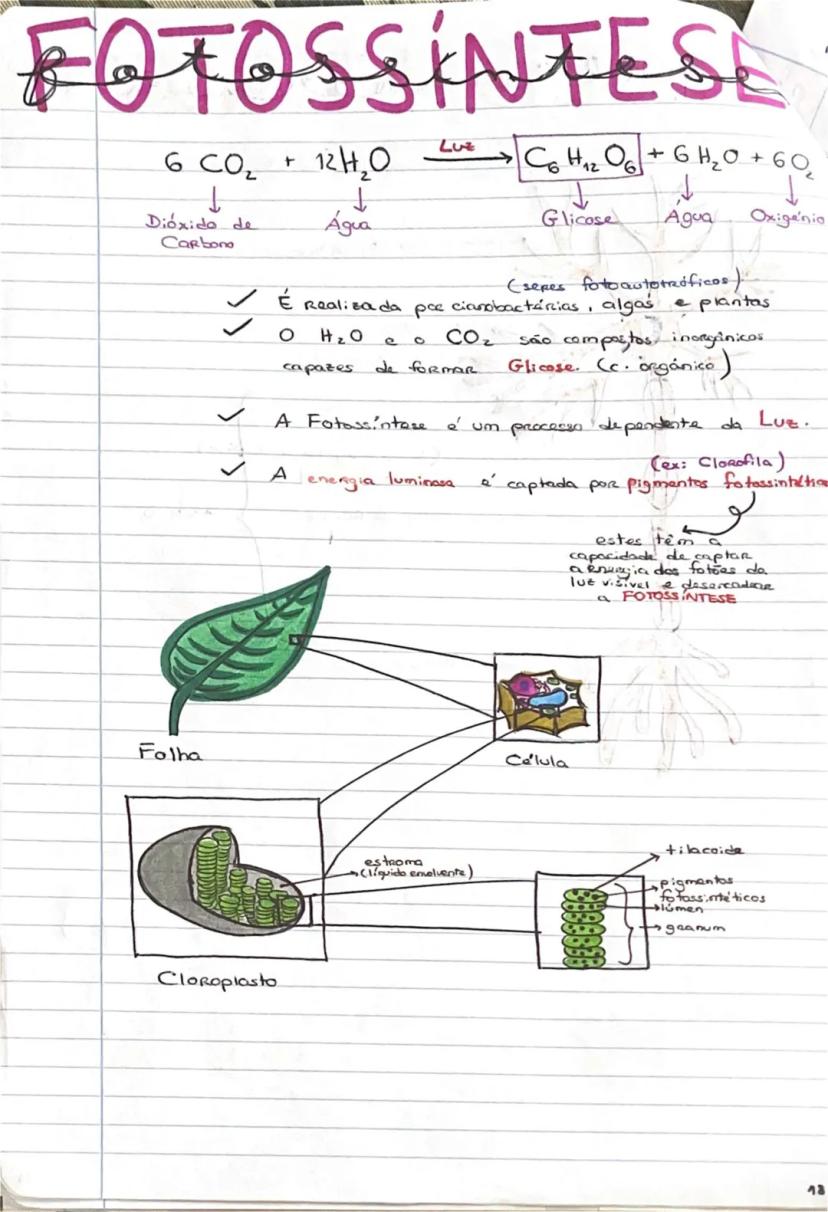 FOTOSSÍNTESE
fotossíntese
6 CO₂ + 12H₂O Luz → C₆ H₁₂ O₆ + 6 H₂O + 6O₂
Dióxido de Carbono Água Glicose Água Oxigénio
(seres fotoautotróficos)
✓ É realizada por cianobactérias, algas e plantas
✓ O H₂O e o CO₂ são compostos inorgânicos
capazes de formar Glicose. (c. orgânico)
✓ A Fotossíntese é um processo dependente da Luz.
(ex: Clorofila)
✓ A energia luminosa é captada por pigmentos fotossintético
estes têm a
capacidade de captar
a energia dos fotões da
luz visível e desencadear
a FOTOSSÍNTESE
Folha
Célula
estroma
(líquido envolvente)
tilacoide
pigmentos
fotossintéticos
lúmen
granum
Cloroplasto